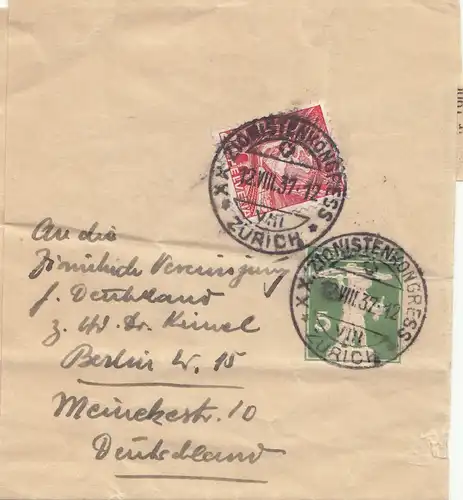 XX. ZIONISTENKONGRESS
12.VIII.37.-12
VIII
ZÜRICH
HELVETIA
XX. ZIONISTENKONGRESS
12.VIII.37.-12
VIII
ZÜRICH
5
An die
Zionistische Vereinigung
f. Deutschland
z. Hd. Dr.
Berlin W. 15
Meinekestr. 10
Deutschland